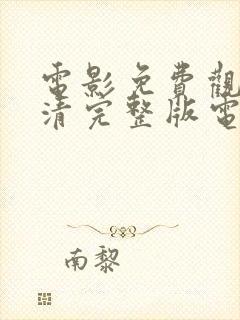 電影免費觀
清完整版電
南黎